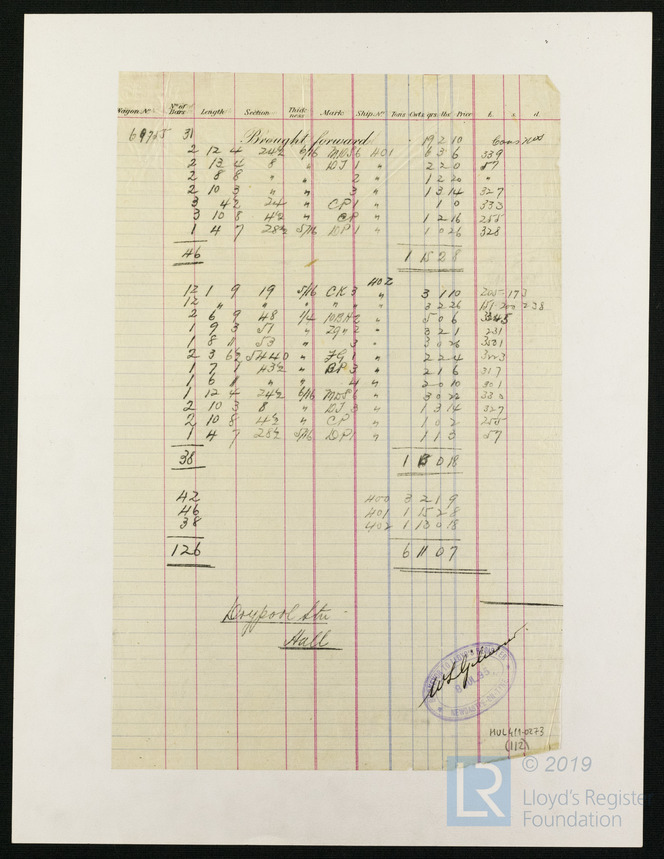 Wagon No No of Bars Length Section Thickness Mark Ship No Tons Cwts qrs. lbs Price £. s. d.
69705 31 Brought forward 19 2 10
2 12 4 24½ 6/16 MDS6 401 6 3 6 339
2 13 4 8 " DJ 1 " 2 2 0 57
2 8 8 " " 2 " 1 2 20 "
2 10 3 " " 3 " 1 3 14 327
3 42 24 " CP1 " 1 0 333
3 10 8 4½ " CP " 1 2 16 255
1 4 7 28½ 5/16 DP1 " 1 0 26 328
46 1 15 2 8
402
12 1 9 19 5/16 CK3 " 3 1 10 205-173
12 " " " " " " 3 2 26 238
2 6 9 48 1/4 " 5 0 6
1 9 3 51 " 2 " 3 2 1 231
1 8 11 53 " 3 " 3 0 26
2 3 6½ " FG 1 " 2 2 4
1 7 7 43½ " BP3 " 2 1 6 317
1 6 11 " " 4 " 2 0 10 301
1 12 4 24½ 6/16 MDS6 " 3 0 22 330
2 10 3 8 " DJ 3 " 1 3 14 327
2 10 8 4½ " CP " 1 0 2 255
1 4 7 28½ 5/16 DP1 " 1 1 0 57
38 1 13 0 18
42 400 3 2 1 9
46 401 1 15 2 8
38 402 1 13 0 18
126 6 11 0 7
Drypool Stn
Hull
HUL411-0273
(112)
© 2019
LR Lloyd's Register
Foundation